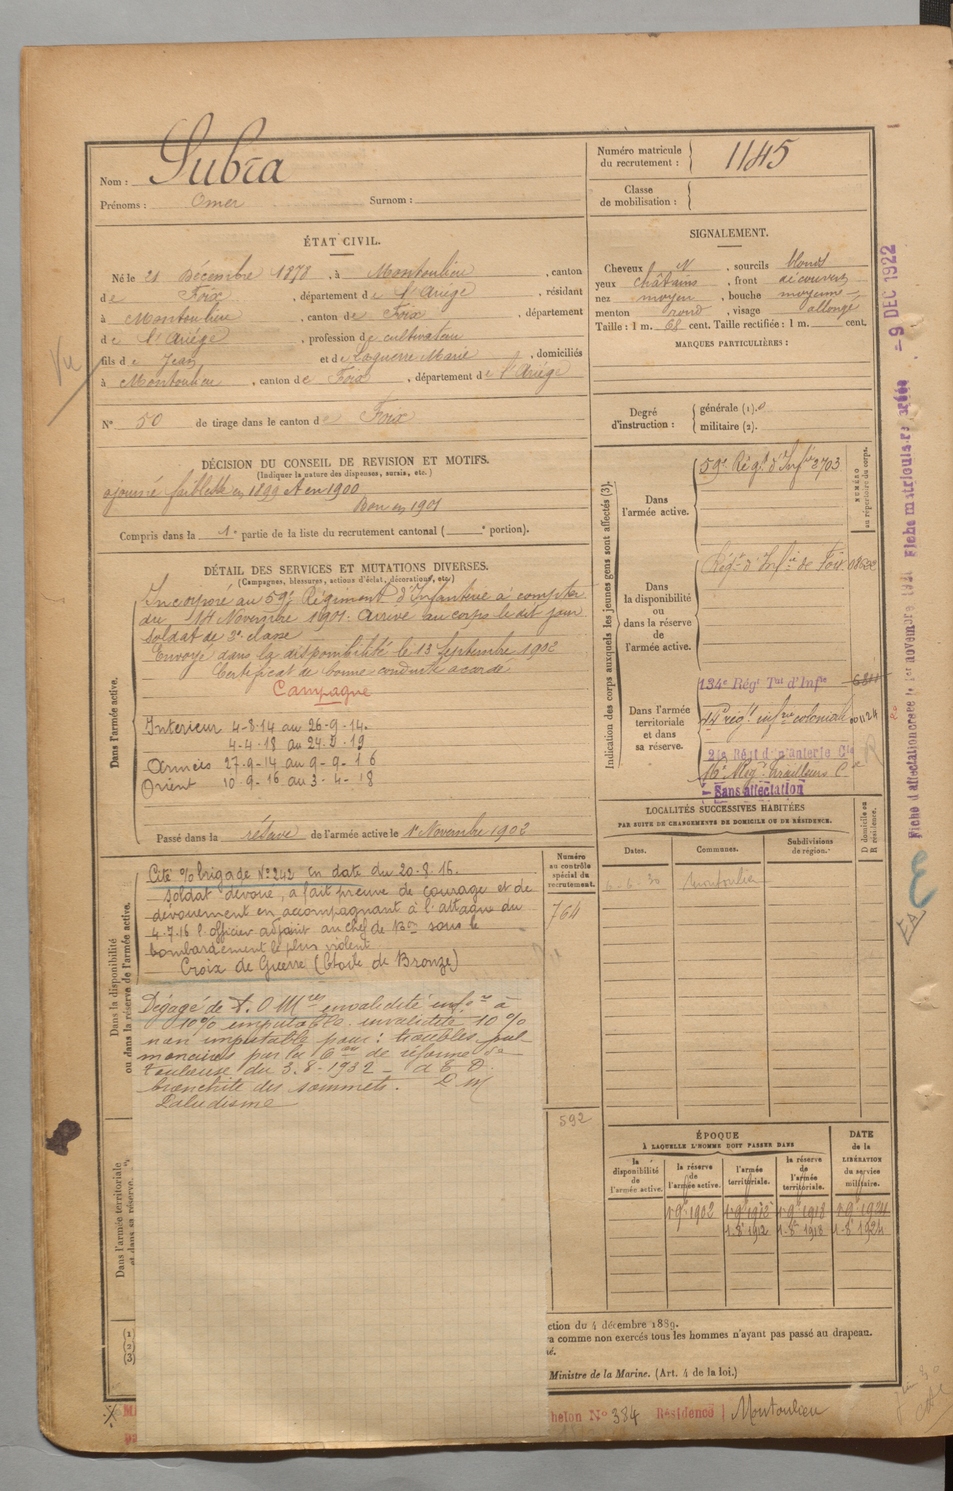 Nom : Subra
Prénoms : Omer Surnom :
ÉTAT CIVIL.
Né le 21 Décembre 1878, à Montoulieu, canton
de Foix, département de l'Ariège, résidant
à Montoulieu, canton de Foix, département
de l'Ariège, profession de cultivateur
fils de Jean et de Laguerre Marie, domiciliés
à Montoulieu, canton de Foix, département de l'Ariège
Vu
N° 50 de tirage dans le canton de Foix
DÉCISION DU CONSEIL DE REVISION ET MOTIFS.
(Indiquer la nature des dispenses, sursis, etc.)
ajourné faiblesse en 1899 et en 1900
Bon en 1901
Compris dans la 1e partie de la liste du recrutement cantonal ( e portion).
DÉTAIL DES SERVICES ET MUTATIONS DIVERSES.
(Campagnes, blessures, actions d'éclat, décorations, etc.)
Dans l'armée active.
Incorporé au 59e Régiment d'Infanterie à compter
du 14 Novembre 1901. Arrivé au corps le dit jour
soldat de 2e classe
Envoyé dans la disponibilité le 13 Septembre 1902
Certificat de bonne conduite accordé
Campagne
Intérieur 4-8-14 au 26-9-14.
4-4-18 au 24-2-19
Armées 27-9-14 au 9-9-16
Orient 10-9-16 au 3-4-18
Passé dans la réserve de l'armée active le 1er Novembre 1902
Dans la disponibilité
ou dans la réserve de l'armée active.
Cité % brigade N° 242 en date du 20-8-16.
Soldat dévoué, a fait preuve de courage et de
dévouement en accompagnant à l'attaque du
4-7-16 l'officier adjoint au chef de Bon sous le
bombardement le plus violent.
Croix de Guerre (Etoile de Bronze)
Dégagé de T. O Mres invalidité infre à
10% imputable. invalidité 10%
non imputable pour : troubles pul
monaires par la Con de réforme de
Toulouse du 3.8-1932 - d E D.
bronchite des sommets. P M
Paludisme
Dans l'armée territoriale
et dans sa réserve.
(1)
(2)
(3)
Numéro matricule
du recrutement : 1145
Classe
de mobilisation :
SIGNALEMENT.
Cheveux, sourcils blond
yeux châtains, front découvert
nez moyen, bouche moyenne
menton rond, visage allongé
Taille : 1 m. 68 cent. Taille rectifiée : 1 m. cent.
MARQUES PARTICULIÈRES :
Degré
d'instruction :
générale (1).
militaire (2).
Indication des corps auxquels les jeunes gens sont affectés (3).
NUMÉRO
au répertoire du corps.
Dans
l'armée active.
59e Régt d'Infie 3703
Dans
la disponibilité
ou
dans la réserve
de
l'armée active.
Régt d'Infie de Foix
Dans l'armée
territoriale
et dans
sa réserve.
134e Régt Tal d'Infie
14e régt infie coloniale 001124
Sans affectation
LOCALITÉS SUCCESSIVES HABITÉES
PAR SUITE DE CHANGEMENTS DE DOMICILE OU DE RÉSIDENCE.
D domicile ou
R résidence.
Dates. Communes. Subdivisions
de région.
6-6-30 Montoulieu
Numéro
au contrôle
spécial du
recrutement.
764
592
ÉPOQUE
À LAQUELLE L'HOMME DOIT PASSER DANS
la
disponibilité
de
l'armée active.
la réserve
de
l'armée active.
l'armée
territoriale.
la réserve
de
l'armée
territoriale.
DATE
de la
LIBÉRATION
du service
militaire.
1 9bre 1902 1 9bre 1912 1 9bre 1918 1 9bre 1924
1-8bre 1912 1-8bre 1918 1-8bre 1924
ction du 4 décembre 1889.
a comme non exercés tous les hommes n'ayant pas passé au drapeau.
né.
Ministre de la Marine. (Art. 4 de la loi.)
helon N° 384 Résidence Montoulieu
- 9 DEC 1922
Fiche matriculaire créée
Fiche d'affectation créée le 1er novembre 1921
EA